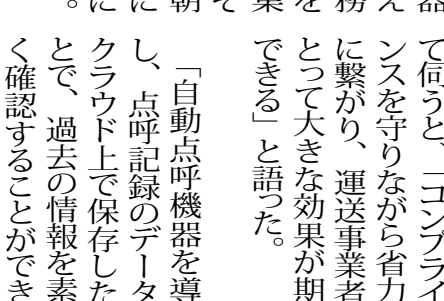 て伺うと、「コンプライ
ンスを守りながら省力
に繋がり、運送事業者
とって大きな効果が期
できる」と語った。
「自動点呼機器を導
し、点呼記録のデータ
クラウド上で保存した
とで、過去の情報を素
く確認することができ